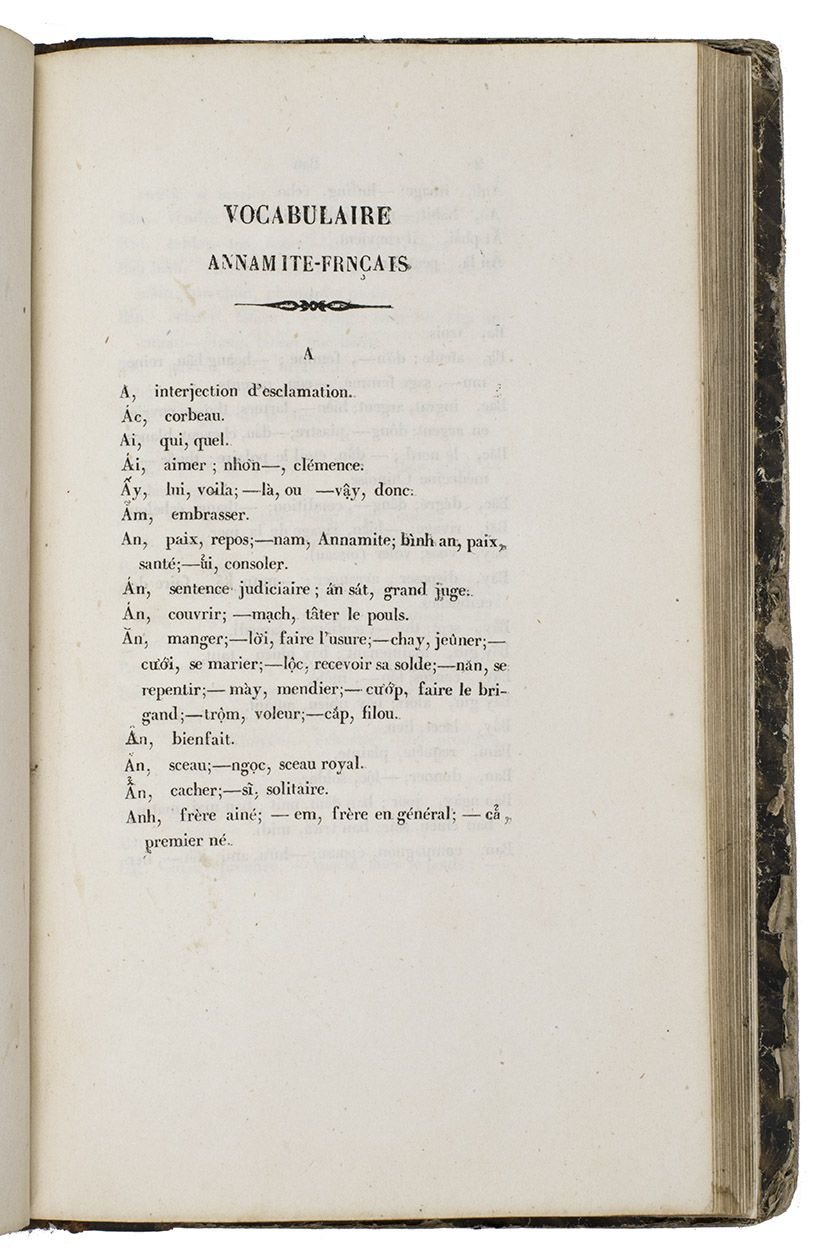 VOCABULAIRE
ANNAMITE-FRNÇAIS
A
A, interjection d'esclamation.
Ác, corbeau.
Ai, qui, quel.
Ái, aimer ; nhơn—, clémence.
Ấy, lui, voila; —là, ou —vậy, donc.
Ẵm, embrasser.
An, paix, repos;—nam, Annamite; bình an, paix,
santé;—ủi, consoler.
Án, sentence judiciaire ; án sát, grand juge.
Án, couvrir; —mạch, tâter le pouls.
Ăn, manger;—lời, faire l'usure;—chay, jeûner;—
cưới, se marier;—lộc, recevoir sa solde;—năn, se
repentir;— mày, mendier;— cướp, faire le bri-
gand;—trộm, voleur;—cắp, filou.
Ân, bienfait.
Ấn, sceau;—ngọc, sceau royal.
Ẩn, cacher;—sĩ, solitaire.
Anh, frère ainé; — em, frère en général; — cả,
premier né.